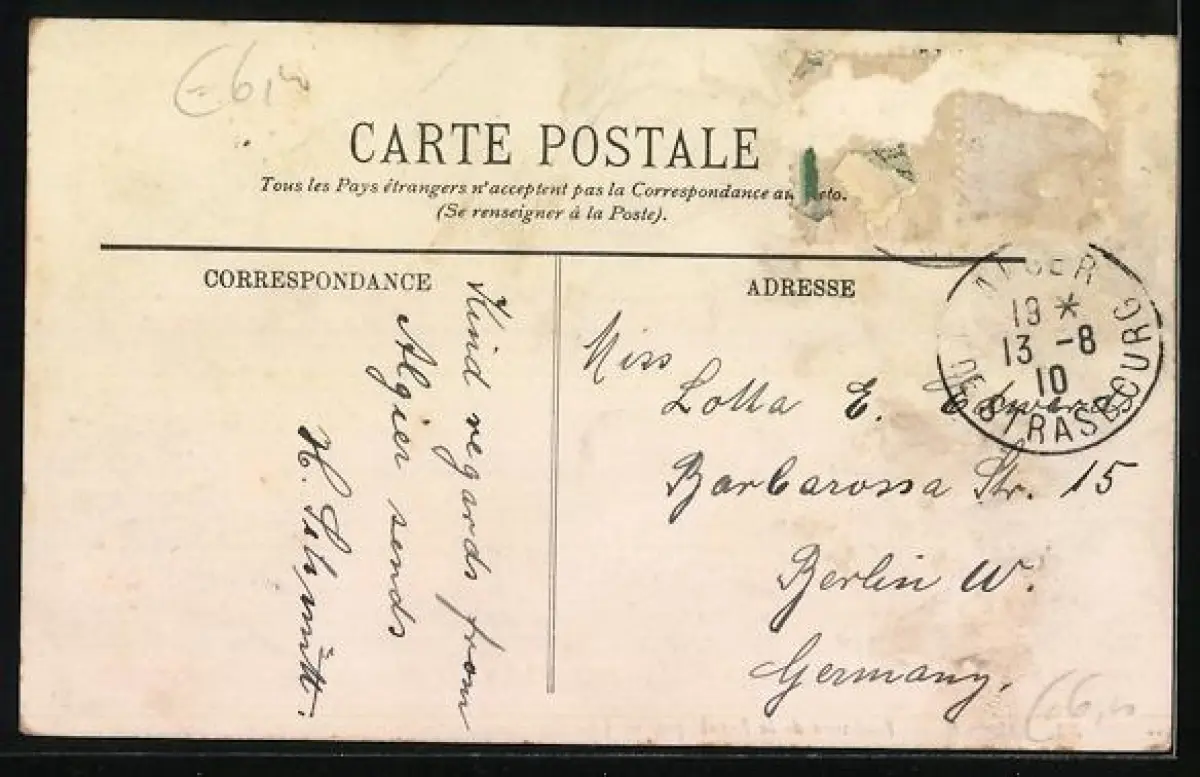 € 6,00
CARTE POSTALE
Tous les Pays étrangers n'acceptent pas la Correspondance au
(Se renseigner à la Poste).
CORRESPONDANCE
ADRESSE
Kind regards from
Algier sends
H. Schmitt.
ALGER
19 *
13 -8
10
DE STRASBOURG
Miss
Lotta E. Edwards
Barbarossa Str. 15
Berlin W.
Germany.